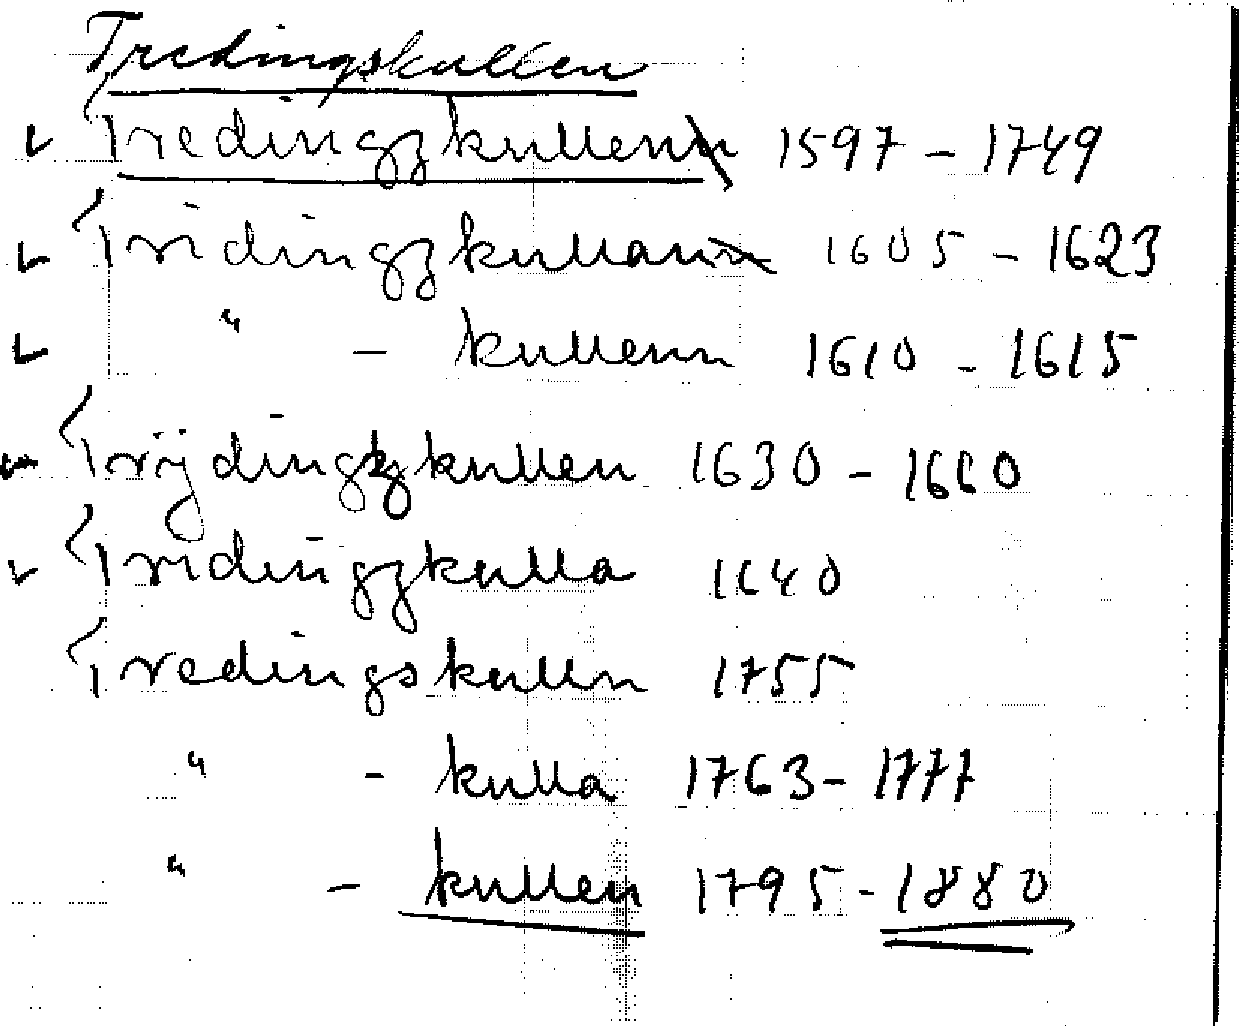 Tredingskullen
Tredingzkullenn 1597 - 1749
Tridingzkullann 1605 - 1623
" - kullenn 1610 - 1615
Trijdingzkullen 1630 - 1660
Tridingzkulla 1640
Tredingskulln 1755
" - kulla 1763 - 1777
" - kullen 1795 - 1880